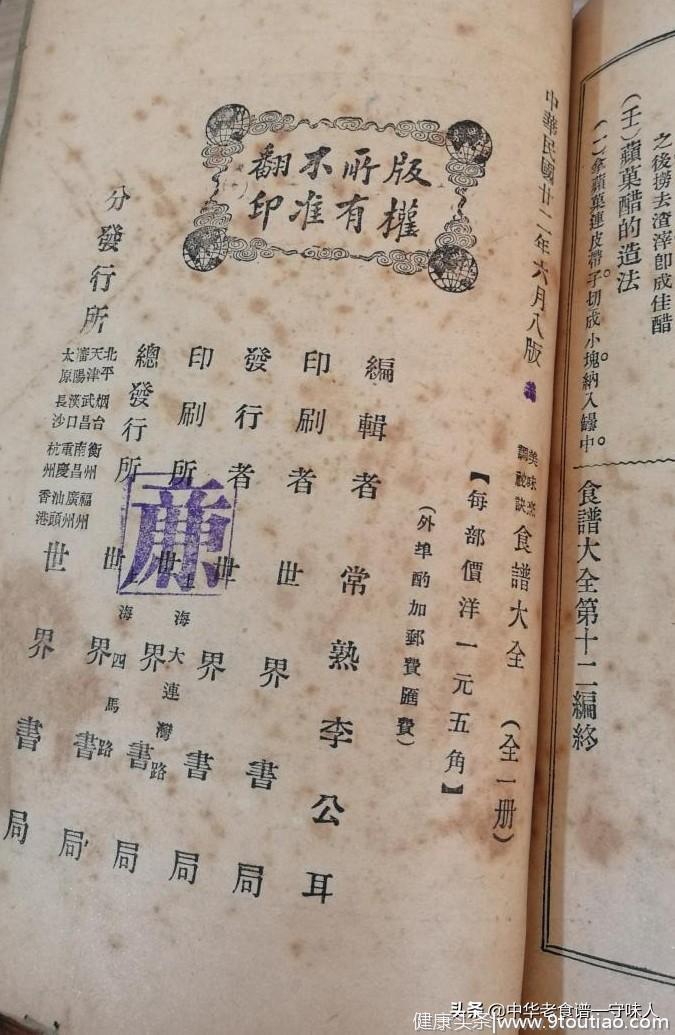 之後撈去渣滓卽成佳醋
(壬)蘋菓醋的造法
(一)拿蘋菓連皮帶子。切成小塊。納入罎中。
食譜大全第十二編終
中華民國廿二年六月八版
版權所有
不准翻印
美味烹調秘訣 食譜大全 (全一册)
【每部價洋一元五角】
(外埠酌加郵費匯費)
編輯者 常熟李公耳
印刷者 世界書局
發行者 世界書局
印刷所 上海大連灣路 世界書局
總發行所 上海四馬路 世界書局
分發行所 北平 天津 瀋陽 太原 烟台 武昌 漢口 長沙 衡州 南昌 重慶 杭州 福州 廣州 汕頭 香港 世界書局
头条 @中华老食谱—守味人
健康头条|www.9toutiao.com